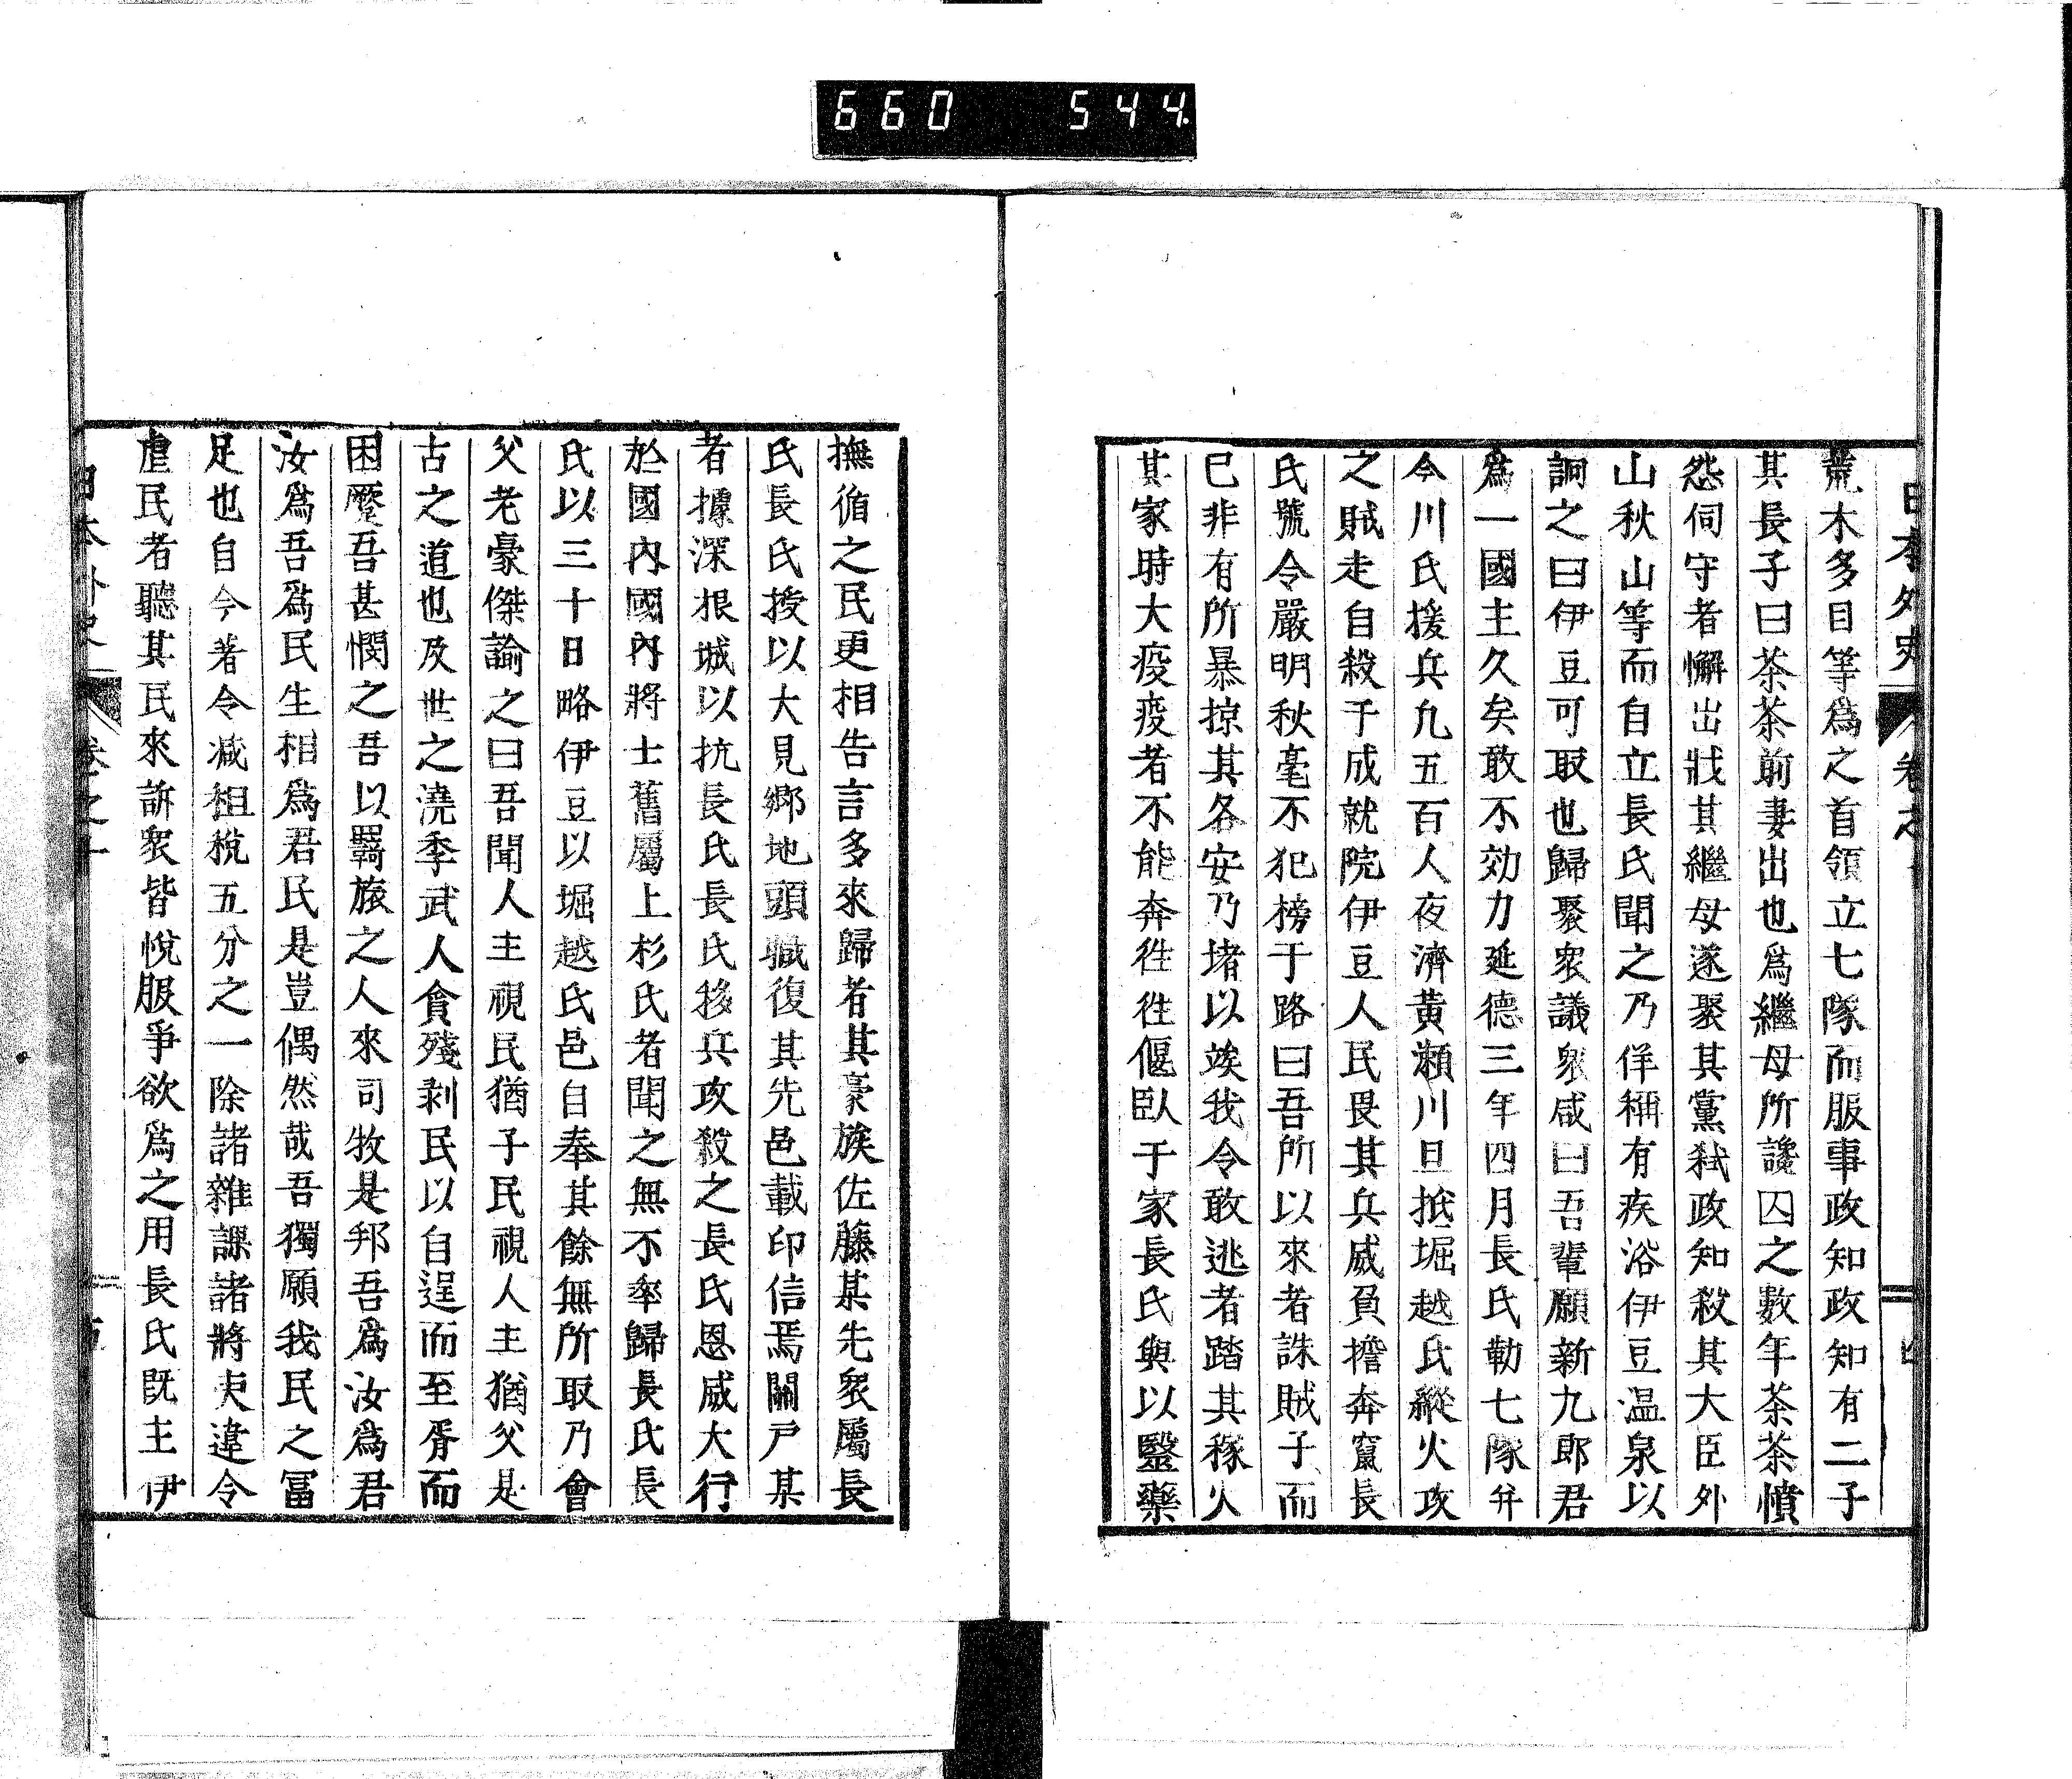 660 544.
日本外史 卷之十
荒木多目等爲之首領立七隊而服事政知政知有二子
其長子曰茶茶前妻出也爲繼母所讒囚之數年茶茶憤
怨伺守者懈出戕其繼母遂聚其黨弑政知殺其大臣外
山秋山等而自立長氏聞之乃佯稱有疾浴伊豆温泉以
詗之曰伊豆可取也歸聚衆議衆咸曰吾輩願新九郎君
爲一國主久矣敢不効力延德三年四月長氏勒七隊并
今川氏援兵凢五百人夜濟黃瀬川旦抵堀越氏縱火攻
之賊走自殺于成就院伊豆人民畏其兵威負擔奔竄長
氏號令嚴明秋毫不犯榜于路曰吾所以來者誅賊子而
已非有所暴掠其各安乃堵以竢我令敢逃者踏其稼火
其家時大疫疫者不能奔徃徃偃臥于家長氏與以毉藥
撫循之民更相告言多來歸者其豪族佐藤某先衆屬長
氏長氏授以大見鄉地頭職復其先邑載印信焉關戸某
者據深根城以抗長氏長氏移兵攻殺之長氏恩威大行
於國內國內將士舊屬上杉氏者聞之無不率歸長氏長
氏以三十日略伊豆以堀越氏邑自奉其餘無所取乃會
父老豪傑諭之曰吾聞人主視民猶子民視人主猶父是
古之道也及世之澆季武人貪殘剥民以自逞而至胥而
困蹷吾甚憫之吾以羇旅之人來司牧是邦吾爲汝爲君
汝爲吾爲民生相爲君民是豈偶然哉吾獨願我民之冨
足也自今著令减租稅五分之一除諸雜課諸將夫違令
虐民者聽其民來訴衆皆悅服爭欲爲之用長氏既主伊
日本外史 卷之十 五